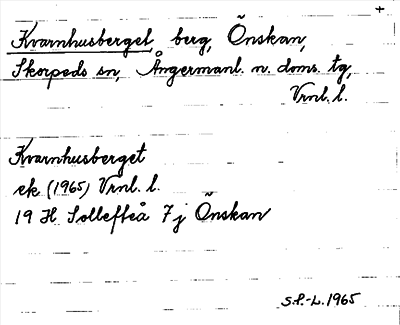 +
Kvarnhusberget, berg, Önskan,
Skorpeds sn, Ångermanl. n. doms. tg,
Vrnl. l.
Kvarnhusberget
ek (1965) Vrnl. l.
19 H Sollefteå 7j Önskan
S.P.-L. 1965